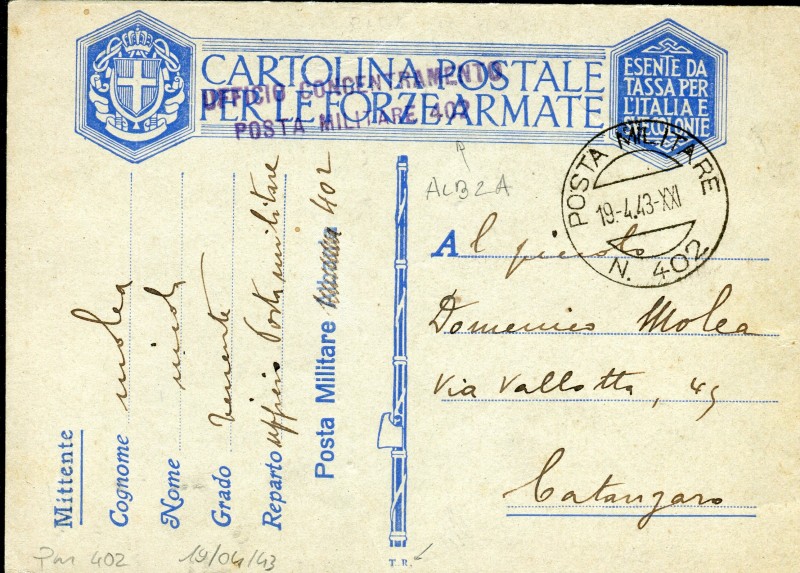 CARTOLINA POSTALE
PER LE FORZE ARMATE
UFFICIO CONCENTRAMENTO
POSTA MILITARE 402
ESENTE DA
TASSA PER
L'ITALIA E
SUE COLONIE
POSTA MILITARE
19.-4.43-XXI
N. 402
ALB2A
Al piccolo
Domenico Molea
Via Vallotta, 45
Catanzaro
Mittente
Cognome molea
Nome nicola
Grado tenente
Reparto ufficio Posta militare
Posta Militare 402
T. R.
Pm 402
19/04/43